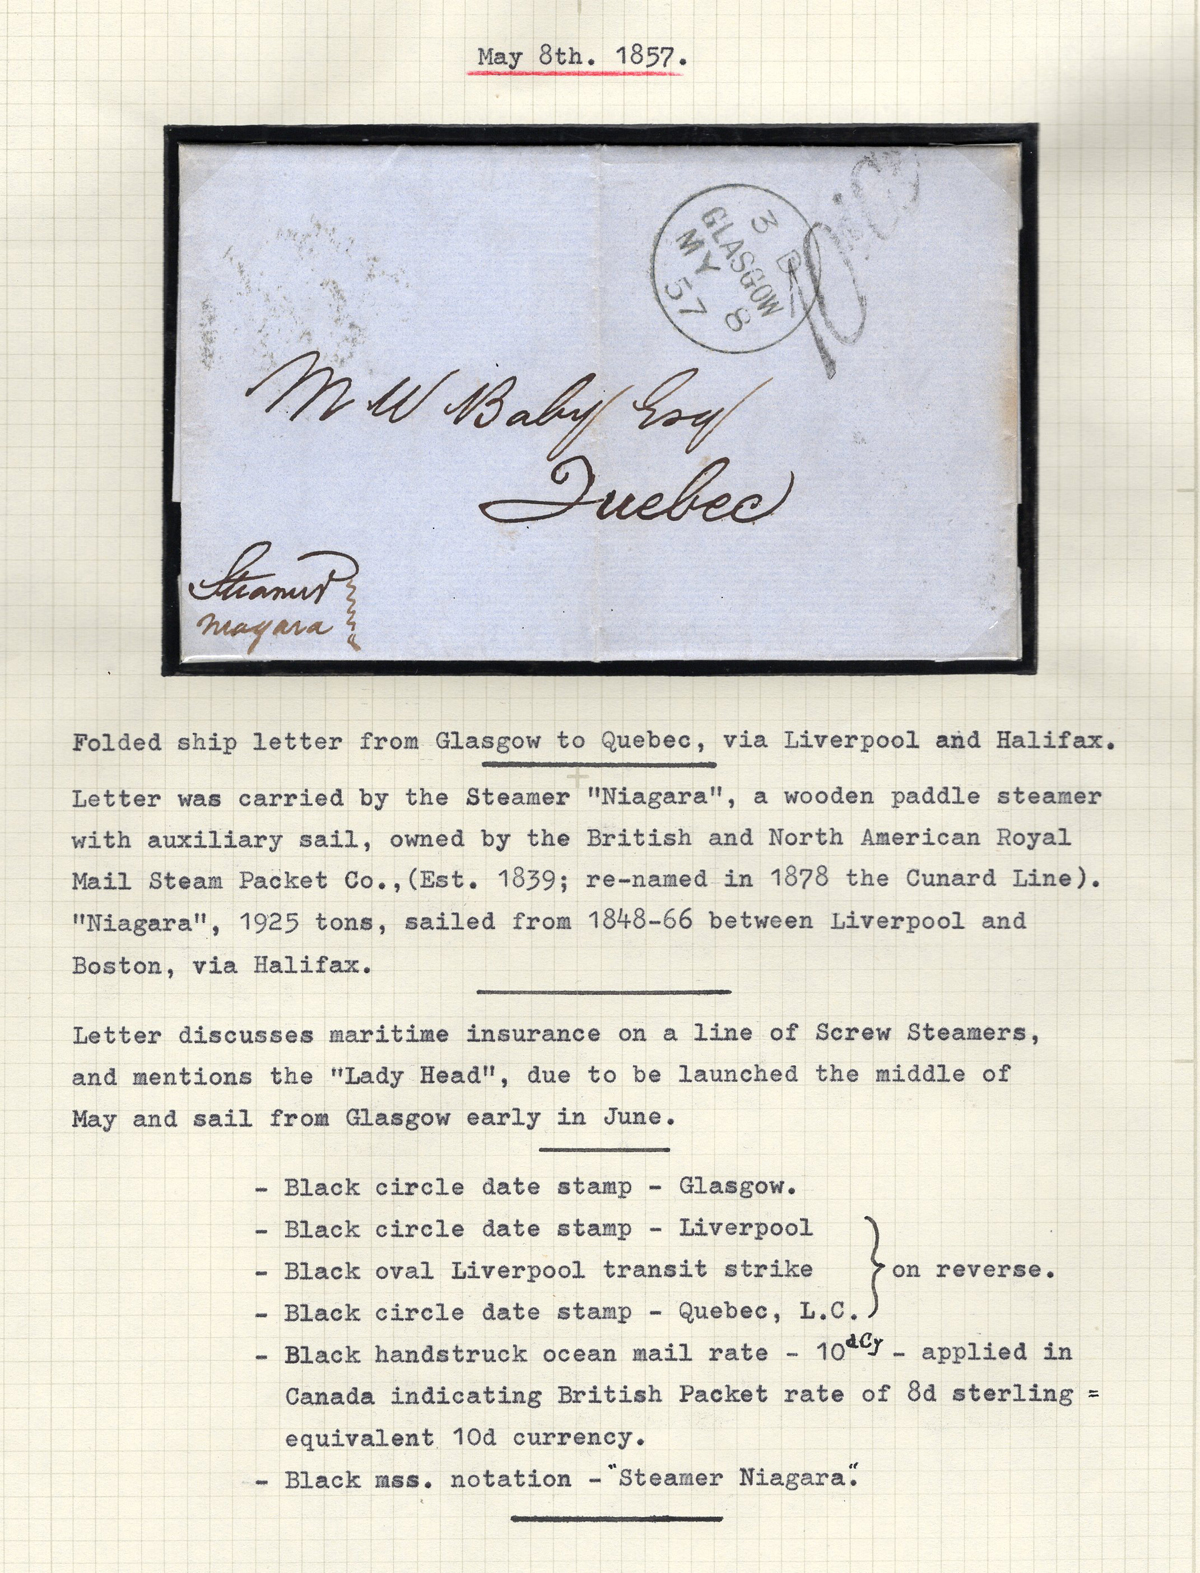 May 8th. 1857.
3 D
GLASGOW
MY 8
57
10
M W Baby Esq
Quebec
Steamer
Niagara
Folded ship letter from Glasgow to Quebec, via Liverpool and Halifax.
Letter was carried by the Steamer "Niagara", a wooden paddle steamer
with auxiliary sail, owned by the British and North American Royal
Mail Steam Packet Co.,(Est. 1839; re-named in 1878 the Cunard Line).
"Niagara", 1925 tons, sailed from 1848-66 between Liverpool and
Boston, via Halifax.
Letter discusses maritime insurance on a line of Screw Steamers,
and mentions the "Lady Head", due to be launched the middle of
May and sail from Glasgow early in June.
- Black circle date stamp - Glasgow.
- Black circle date stamp - Liverpool
- Black oval Liverpool transit strike } on reverse.
- Black circle date stamp - Quebec, L.C.
- Black handstruck ocean mail rate - 10dCy - applied in
Canada indicating British Packet rate of 8d sterling =
equivalent 10d currency.
- Black mss. notation - "Steamer Niagara".